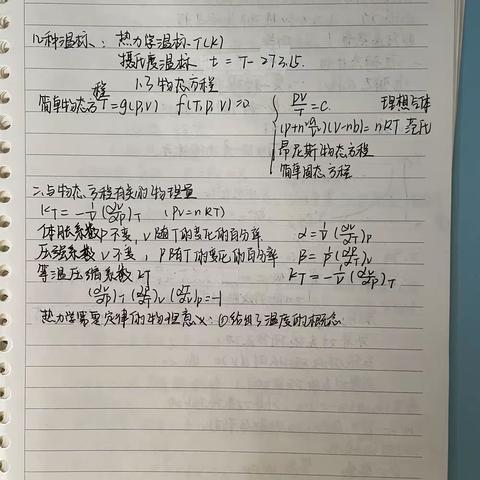 几种温标: 热力学温标 T(K)
摄氏度温标 t = T-273.15.
1.3 物态方程
简单物态方程 T=g(P,V) f(T,P,V)=0
PV/T = C. 理想气体
(V-nb) = nRT 范氏
昂尼斯物态方程
简单固态方程
二、与物态方程有关的物理量
κT = -1/V (∂V/∂P)T (PV=nRT)
体胀系数 P不变, V随T的变化的百分率 α = 1/V (∂V/∂T)P
压强系数 V不变, P随T的变化的百分率 β = 1/P (∂P/∂T)V
等温压缩系数 κT κT = -1/V (∂V/∂P)T
(∂V/∂P)T (∂P/∂T)V (∂T/∂V)P = -1
热力学第零定律的物理意义: ①给出了温度的概念